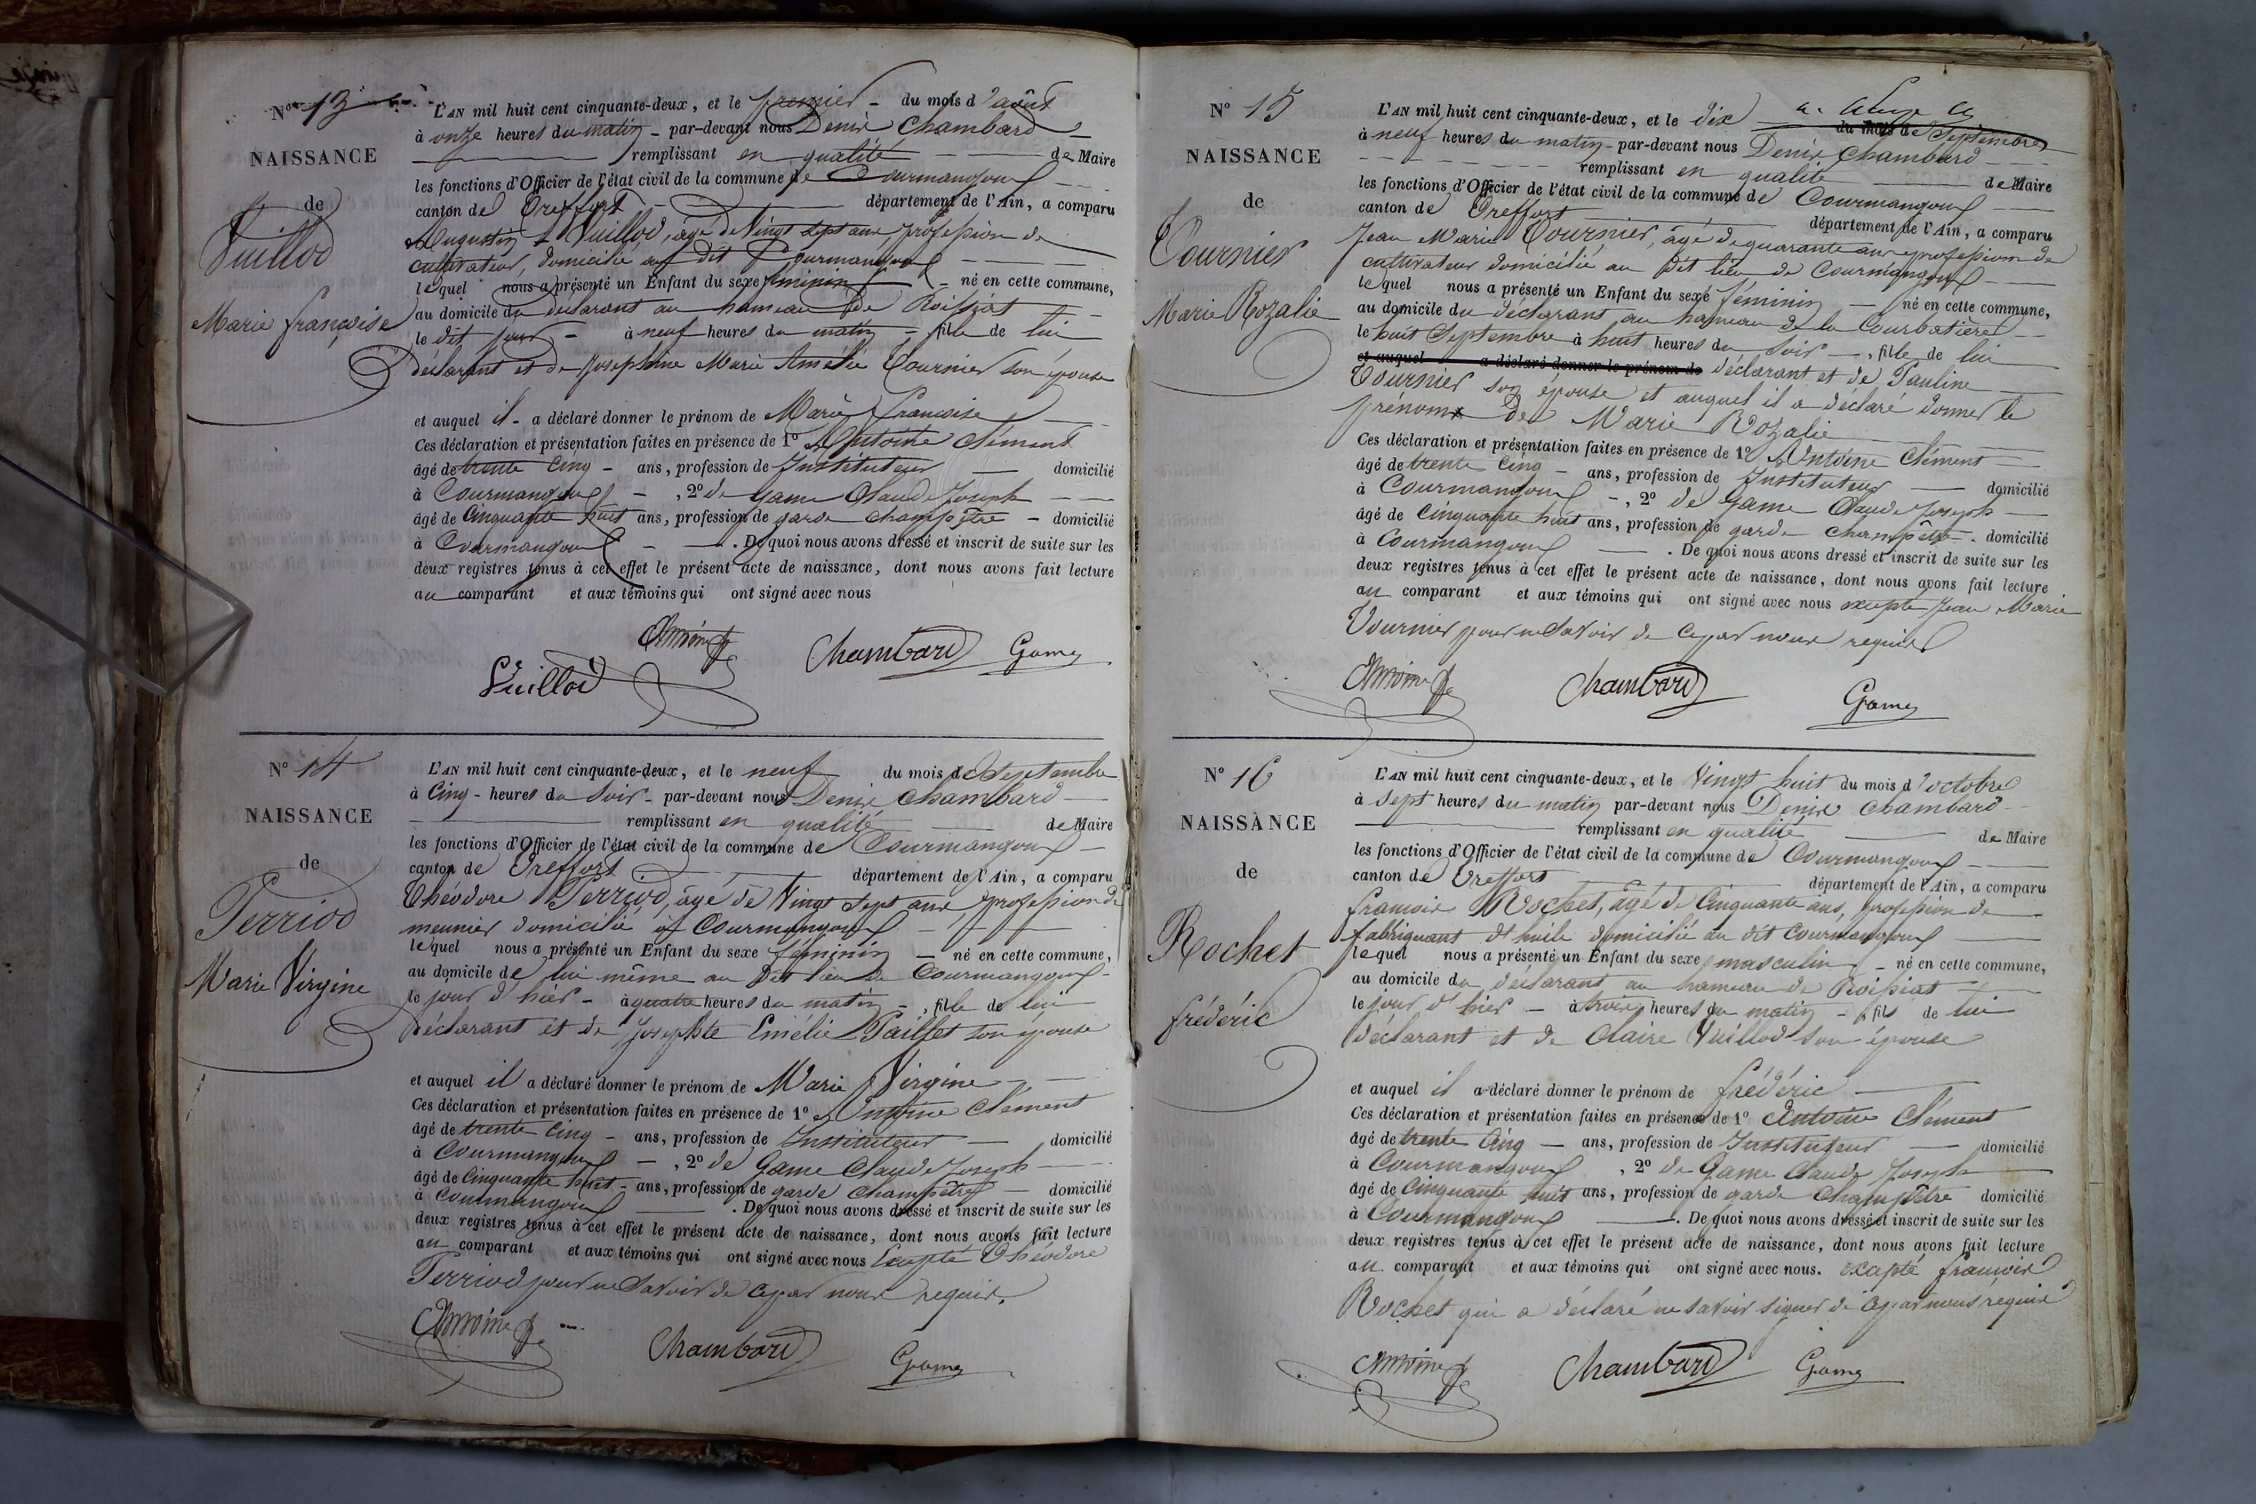 N° 13
NAISSANCE
de
Vuillod
Marie françoise
L'AN mil huit cent cinquante-deux, et le premier - du mois d'août
à onze heures du matin - par-devant nous Denis Chambard
remplissant en qualité de Maire
les fonctions d'Officier de l'état civil de la commune de Courmangoux
canton de Treffort département de l'Ain, a comparu
Augustin Vuillod, âgé de Vingt sept ans, profession de
cultivateur, domicilié au dit Courmangoux
lequel nous a présenté un Enfant du sexe féminin né en cette commune,
au domicile du déclarant au hameau de Roissiat
le dit jour - à neuf heures du matin - fille de lui
Déclarant et de Josephine Marie Amélie Tournier son épouse
et auquel il - a déclaré donner le prénom de Marie françoise
Ces déclaration et présentation faites en présence de 1° Antoine Clément
âgé de trente cinq - ans, profession de Instituteur domicilié
à Courmangoux - , 2° de Game Claude Joseph
âgé de Cinquante huit ans, profession de garde champêtre - domicilié
à Courmangoux - . De quoi nous avons dressé et inscrit de suite sur les
deux registres tenus à cet effet le présent acte de naissance, dont nous avons fait lecture
au comparant et aux témoins qui ont signé avec nous
Antoine Chambard Game
Vuillod
N° 14
NAISSANCE
de
Perriod
Marie Virgine
L'AN mil huit cent cinquante-deux, et le neuf du mois de Septembre
à Cinq - heures du Soir - par-devant nous Denis Chambard
remplissant en qualité de Maire
les fonctions d'Officier de l'état civil de la commune de Courmangoux
canton de Treffort département de l'Ain, a comparu
Théodore Perriod, âgé de Vingt sept ans, profession de
meunier domicilié à Courmangoux
lequel nous a présenté un Enfant du sexe féminin - né en cette commune,
au domicile de lui même au Dit lieu de Courmangoux
le jour d'hier - à quatre heures du matin - , fille de lui
Déclarant et de Josephte Emélie Paillet son épouse
et auquel il a déclaré donner le prénom de Marie Virgine
Ces déclaration et présentation faites en présence de 1° Antoine Clément
âgé de trente cinq - ans, profession de Instituteur domicilié
à Courmangoux - , 2° de Game Claude Joseph
âgé de Cinquante huit - ans, profession de garde champêtre - domicilié
à Courmangoux . De quoi nous avons dressé et inscrit de suite sur les
deux registres tenus à cet effet le présent acte de naissance, dont nous avons fait lecture
au comparant et aux témoins qui ont signé avec nous Excepté Théodore
Perriod pour ne Savoir de ce par nous requis.
Antoine Chambard Game
N° 15
NAISSANCE
de
Tournier
Marie Rozalie
L'AN mil huit cent cinquante-deux, et le dix du mois de Septembre
à neuf heures du matin - par-devant nous Denis Chambard
remplissant en qualité de Maire
les fonctions d'Officier de l'état civil de la commune de Courmangoux
canton de Treffort département de l'Ain, a comparu
Jean Marie Tournier, âgé de quarante ans profession de
cultivateur domicilié au Dit lieu de Courmangoux
lequel nous a présenté un Enfant du sexe féminin né en cette commune,
au domicile du déclarant au hameau de la Courbatière
le huit Septembre à huit heures du Soir , fille de lui
et auquel a déclaré donner le prénom de déclarant et de Pauline
Tournier son épouse et auquel il a déclaré donner le
prénom de Marie Rozalie
Ces déclaration et présentation faites en présence de 1° Antoine Clément
âgé de trente cinq - ans, profession de Instituteur domicilié
à Courmangoux - , 2° de Game Claude Joseph
âgé de Cinquante huit ans, profession de garde champêtre . domicilié
à Courmangoux . De quoi nous avons dressé et inscrit de suite sur les
deux registres tenus à cet effet le présent acte de naissance, dont nous avons fait lecture
au comparant et aux témoins qui ont signé avec nous excepté Jean Marie
Tournier pour ne Savoir de ce par nous requis
Antoine Chambard Game
N° 16
NAISSANCE
de
Rochet
frédéric
L'AN mil huit cent cinquante-deux, et le Vingt huit du mois d'octobre
à sept heures du matin par-devant nous Denis Chambard
remplissant en qualité de Maire
les fonctions d'Officier de l'état civil de la commune de Courmangoux
canton de Treffort département de l'Ain, a comparu
françois Rochet, âgé de Cinquante ans, profession de
fabriquant d'huile domicilié au dit Courmangoux
lequel nous a présenté un Enfant du sexe masculin - né en cette commune,
au domicile du déclarant au hameau de Roissiat
le jour d'hier - à trois heures du matin - , fils de lui
déclarant et de Claire Vuillod son épouse
et auquel il a déclaré donner le prénom de frédéric
Ces déclaration et présentation faites en présence de 1° Antoine Clément
âgé de trente cinq - ans, profession de Instituteur domicilié
à Courmangoux , 2° de Game Claude Joseph
âgé de Cinquante huit ans, profession de garde champêtre domicilié
à Courmangoux . De quoi nous avons dressé et inscrit de suite sur les
deux registres tenus à cet effet le présent acte de naissance, dont nous avons fait lecture
au comparant et aux témoins qui ont signé avec nous. excepté françois
Rochet qui a déclaré ne savoir signer de ce par nous requis
Antoine Chambard Game